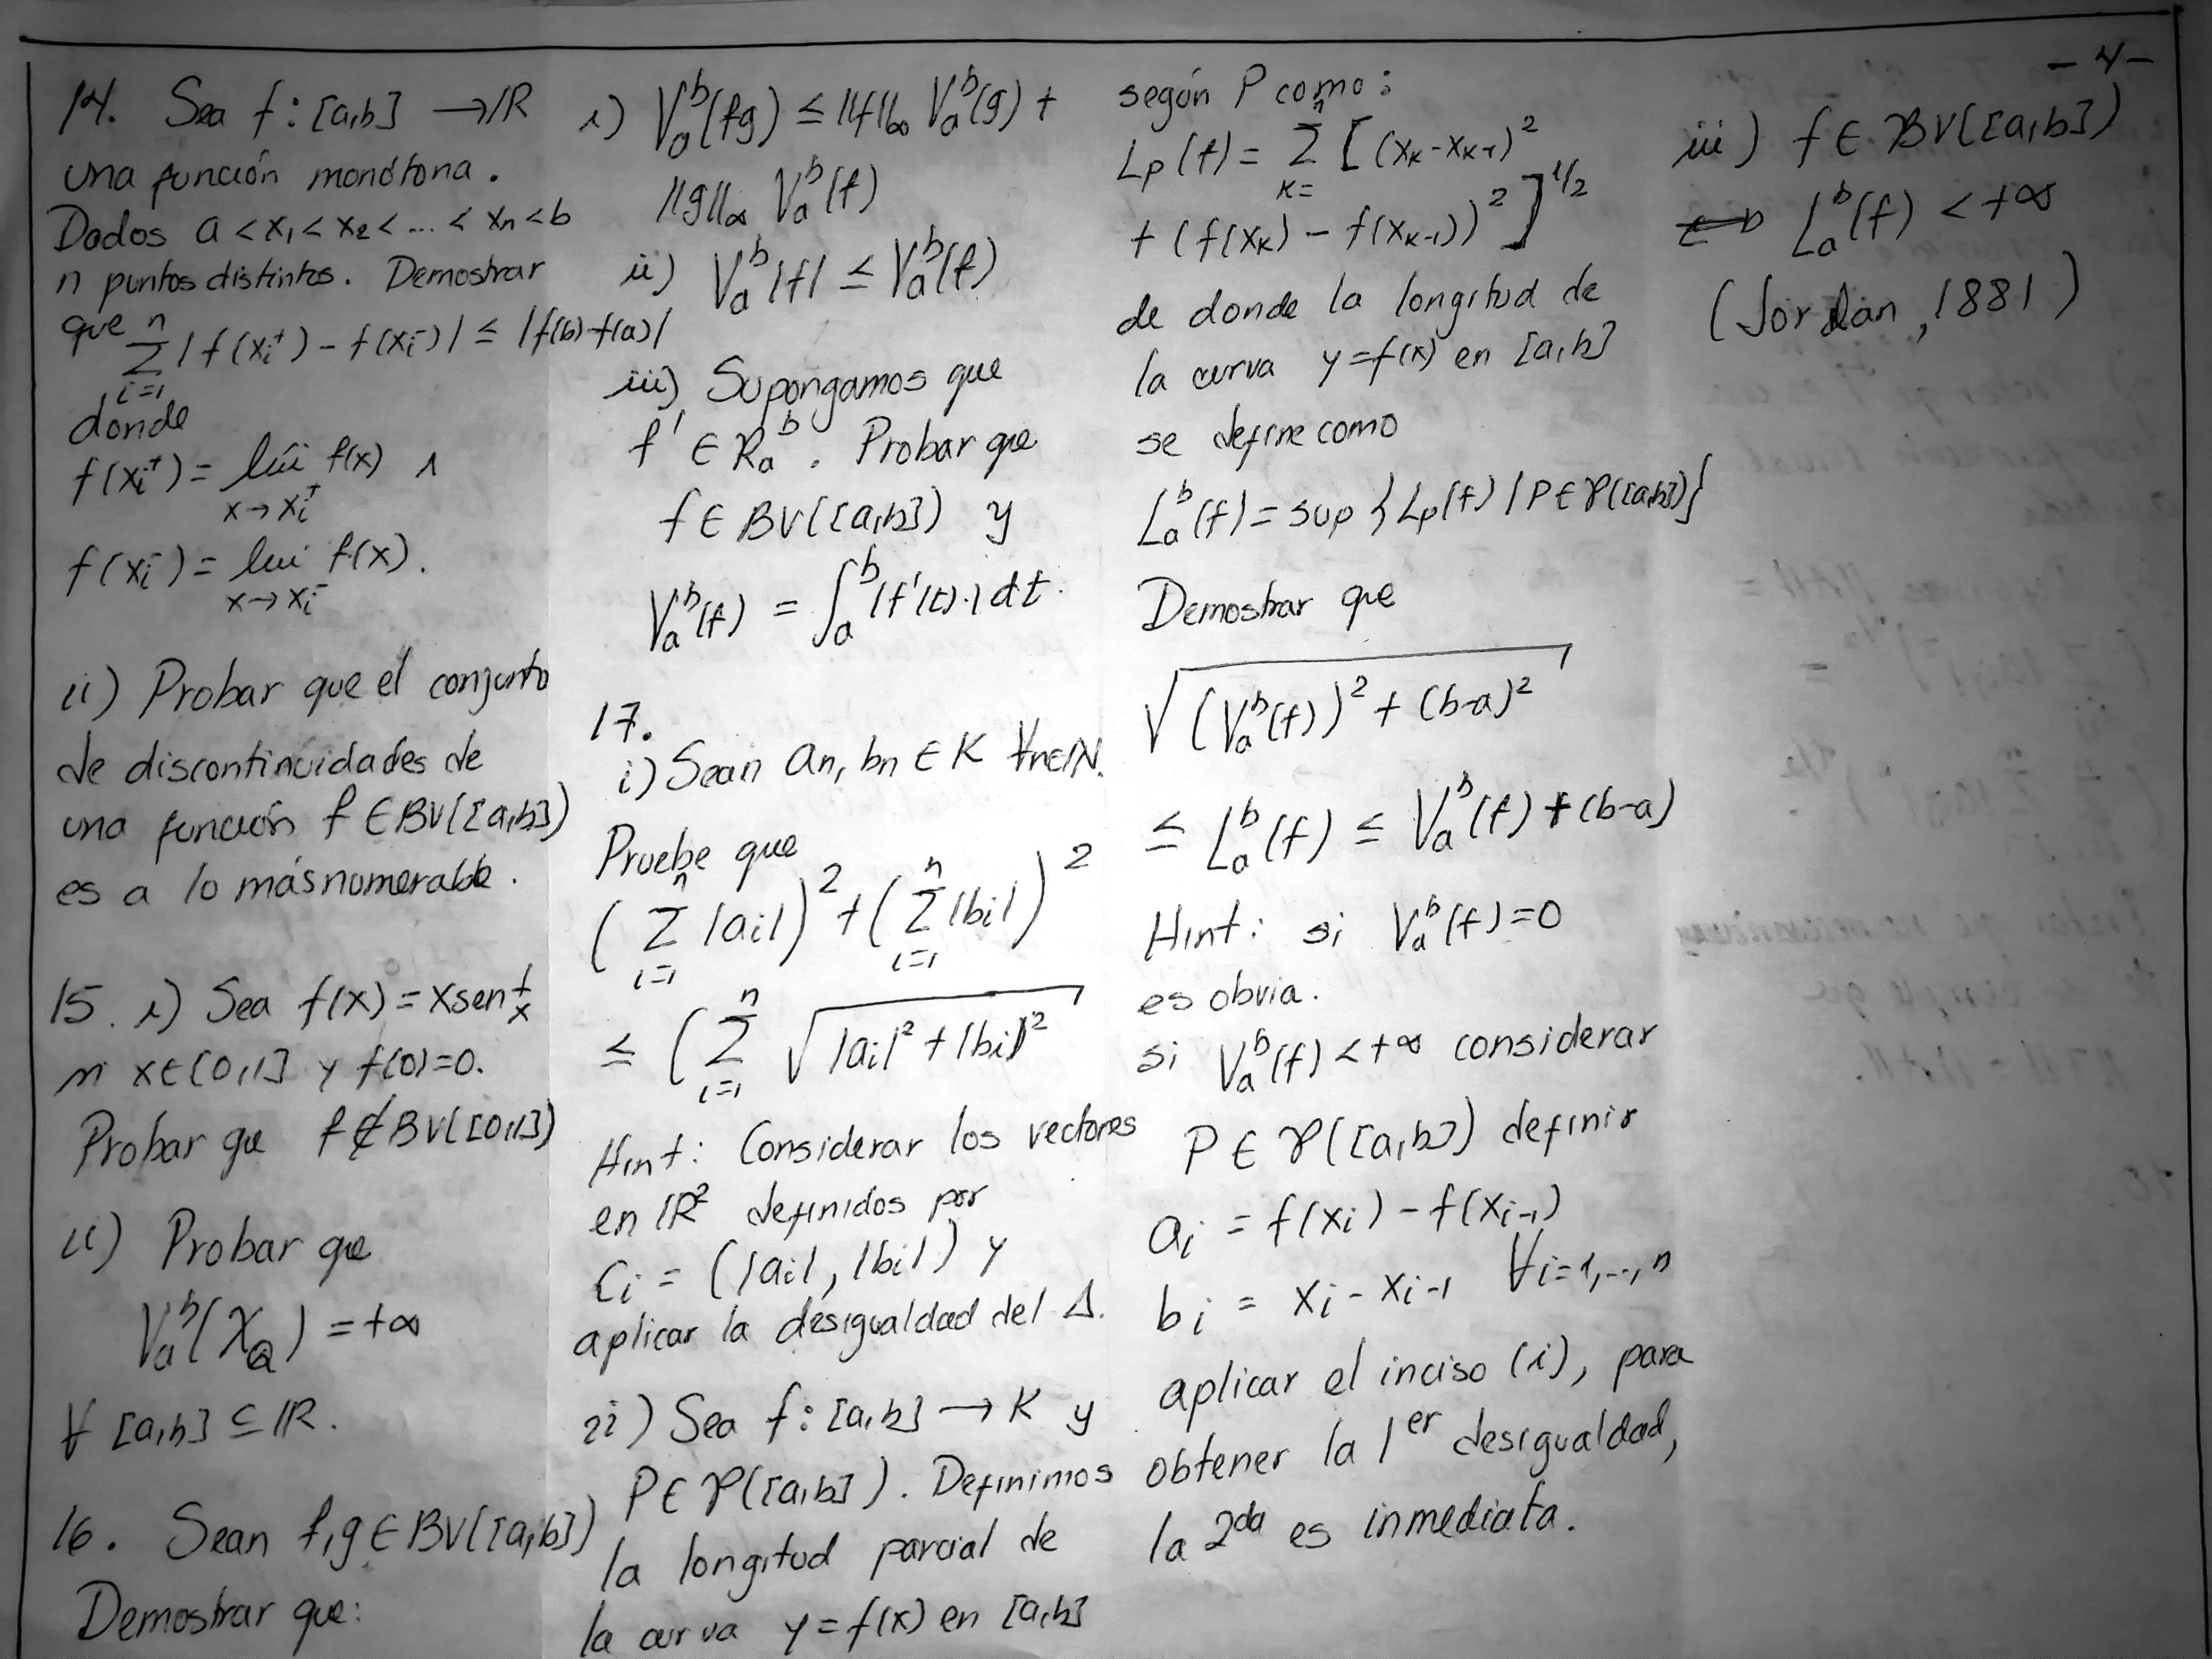 -4-
14. Sea f: [a,b] → ℝ
una función monótona.
Dados a < x₁ < x₂ < ... < xₙ < b
n puntos distintos. Demostrar
que
n
Σ |f(xᵢ⁺) - f(xᵢ⁻)| ≤ |f(b)-f(a)|
i=1
donde
f(xᵢ⁺) = lím f(x) ∧
x→xᵢ⁺
f(xᵢ⁻) = lím f(x).
x→xᵢ⁻
ii) Probar que el conjunto
de discontinuidades de
una función f ∈ BV([a,b])
es a lo más numerable.
15. i) Sea f(x) = x sen 1/x
si x∈(0,1] y f(0)=0.
Probar que f ∉ BV([0,1])
ii) Probar que
Vₐᵇ(χ_Q) = +∞
∀ [a,b] ⊆ ℝ.
16. Sean f,g ∈ BV([a,b])
Demostrar que:
i) Vₐᵇ(fg) ≤ ||f||∞ Vₐᵇ(g) +
||g||∞ Vₐᵇ(f)
ii) Vₐᵇ|f| ≤ Vₐᵇ(f)
iii) Supongamos que
f' ∈ Rₐᵇ. Probar que
f ∈ BV([a,b]) y
Vₐᵇ(f) = ∫ₐᵇ |f'(t)| dt.
17.
i) Sean aₙ, bₙ ∈ K ∀n∈ℕ.
Pruebe que
( Σⁿᵢ₌₁ |aᵢ| )² + ( Σⁿᵢ₌₁ |bᵢ| )²
≤ ( Σⁿᵢ₌₁ √(|aᵢ|² + |bᵢ|)²
Hint: Considerar los vectores
en ℝ² definidos por
Cᵢ = (|aᵢ|, |bᵢ|) y
aplicar la desigualdad del Δ.
ii) Sea f: [a,b] → K y
P ∈ 𝒫([a,b]). Definimos
la longitud parcial de
la curva y = f(x) en [a,b]
según P como:
L_P(f) = Σⁿ_{K=} [ (x_K - x_{K-1})²
+ (f(x_K) - f(x_{K-1}))² ]^{1/2}
de donde la longitud de
la curva y = f(x) en [a,b]
se define como
Lₐᵇ(f) = sup {L_P(f) / P ∈ 𝒫([a,b])}
Demostrar que
√((Vₐᵇ(f))² + (b-a)²)
≤ Lₐᵇ(f) ≤ Vₐᵇ(f) + (b-a)
Hint: si Vₐᵇ(f) = 0
es obvia.
si Vₐᵇ(f) < +∞ considerar
P ∈ 𝒫([a,b]) definir
aᵢ = f(xᵢ) - f(xᵢ₋₁)
bᵢ = xᵢ - xᵢ₋₁ ∀i=1,...,n
aplicar el inciso (i), para
obtener la 1er desigualdad,
la 2da es inmediata.
iii) f ∈ BV([a,b])
⟺ Lₐᵇ(f) < +∞
(Jordan, 1881)